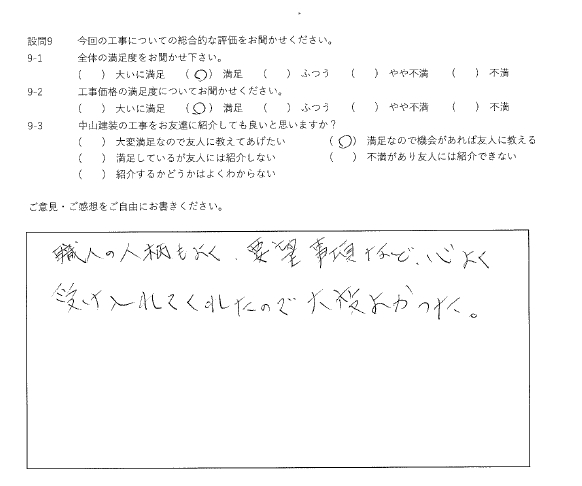 設問9 今回の工事についての総合的な評価をお聞かせください。
9-1 全体の満足度をお聞かせ下さい。
( ) 大いに満足 (○) 満足 ( ) ふつう ( ) やや不満 ( ) 不満
9-2 工事価格の満足度についてお聞かせください。
( ) 大いに満足 (○) 満足 ( ) ふつう ( ) やや不満 ( ) 不満
9-3 中山建装の工事をお友達に紹介しても良いと思いますか？
( ) 大変満足なので友人に教えてあげたい (○) 満足なので機会があれば友人に教える
( ) 満足しているが友人には紹介しない ( ) 不満があり友人には紹介できない
( ) 紹介するかどうかはよくわからない
ご意見・ご感想をご自由にお書きください。
職人の人柄もよく、要望事項など、心よく
受け入れてくれたので大変よかった。